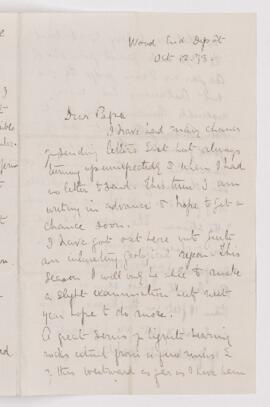 Wood End Depôt
Oct 12. 73.
Dear Papa
I have had many chances
sending letters East but always
turning up unexpectedly & when I had
no letter to send. This time I am
writing in advance & hope to get a
chance soon.
I have got out here into quite
an interesting geological region. This
season I will only be able to make
a slight examination but next
year hope to do more.
A great series of lignite bearing
rocks extend from a few miles E
of this westward as far as I have been